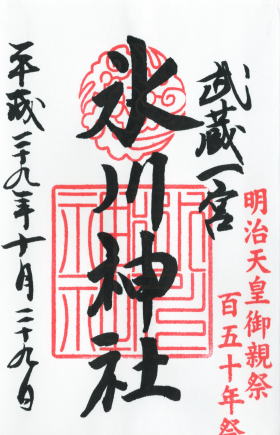 武蔵一宮
明治天皇御親祭
百五十年祭
氷川神社
平成二十九年十月二十九日